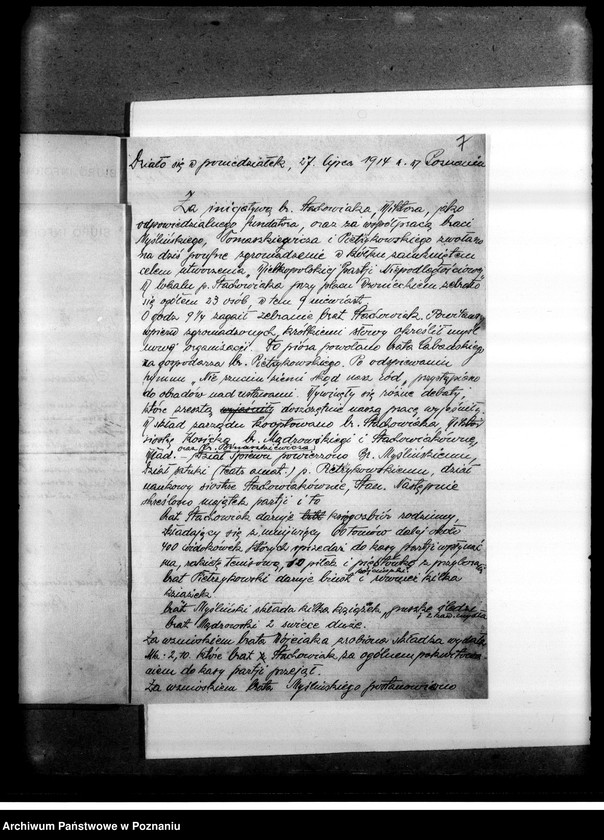 7
Działo się w poniedziałek, 27. lipca 1914 r. w Poznaniu
Za inicjatywą br. Stachowiaka, Wiktora, jako
odpowiedzialnego fundatora, oraz za współpracą braci
Myślińskiego, Tomaszkiewicza i Pietrykowskiego zwołano
na dziś poufne zgromadzenie w kółku zamkniętem
celem utworzenia „Wielkopolskiej Partji Niepodległościowej”
W lokalu p. Stachowiaka przy placu zebrało
się ogółem 23 osób, w tem 9 niewiast.
O godz. 9¼ zagaił zebranie brat Stachowiak. Powitawszy
wpierw zgromadzonych, krótkiemi słowy określił myśl
nowej organizacji. Do pióra powołano brata
za gospodarza br. Pietrykowskiego. Po odśpiewaniu
hymnu „Nie rzucim ziemi skąd nasz ród”, przystąpiono
do obrad nad ustawami. Wywiązały się różne debaty,
które zresztą doszczętnie naszą pracę wyjaśniły.
W skład zarządu kooptowano br. Stachowiaka, Wiktora
siostrę br. Mądrowskiego i Stachowiakównę,
oraz br.
Wład. – Dział śpiewu powierzono Br. Myślińskiemu,
dział sztuki (teatr amat.) p. Pietrykowskiemu, dział
naukowy siostrze Stachowiakównie, Stan. Następnie
określono majątek partji i to
brat Stachowiak daruje księgozbiór rodzinny,
składający się z tomów dalej około
400 widokówek których sprzedaż do kasy partji wpłynąć
ma, rakietę tenisową, piłek i
brat Pietrykowski daruje biust i również kilka
książek.
brat Myśliński składa kilka książek,
brat Mądrowski 2 świece duże.
Za wnioskiem brata Wojciaka zrobiona składka wydała
Mk. 2,10. które brat Stachowiak za ogólnem
niem do kasy partji przejął.
Za wnioskiem brata Myślińskiego postanowiono
Archiwum Państwowe w Poznaniu